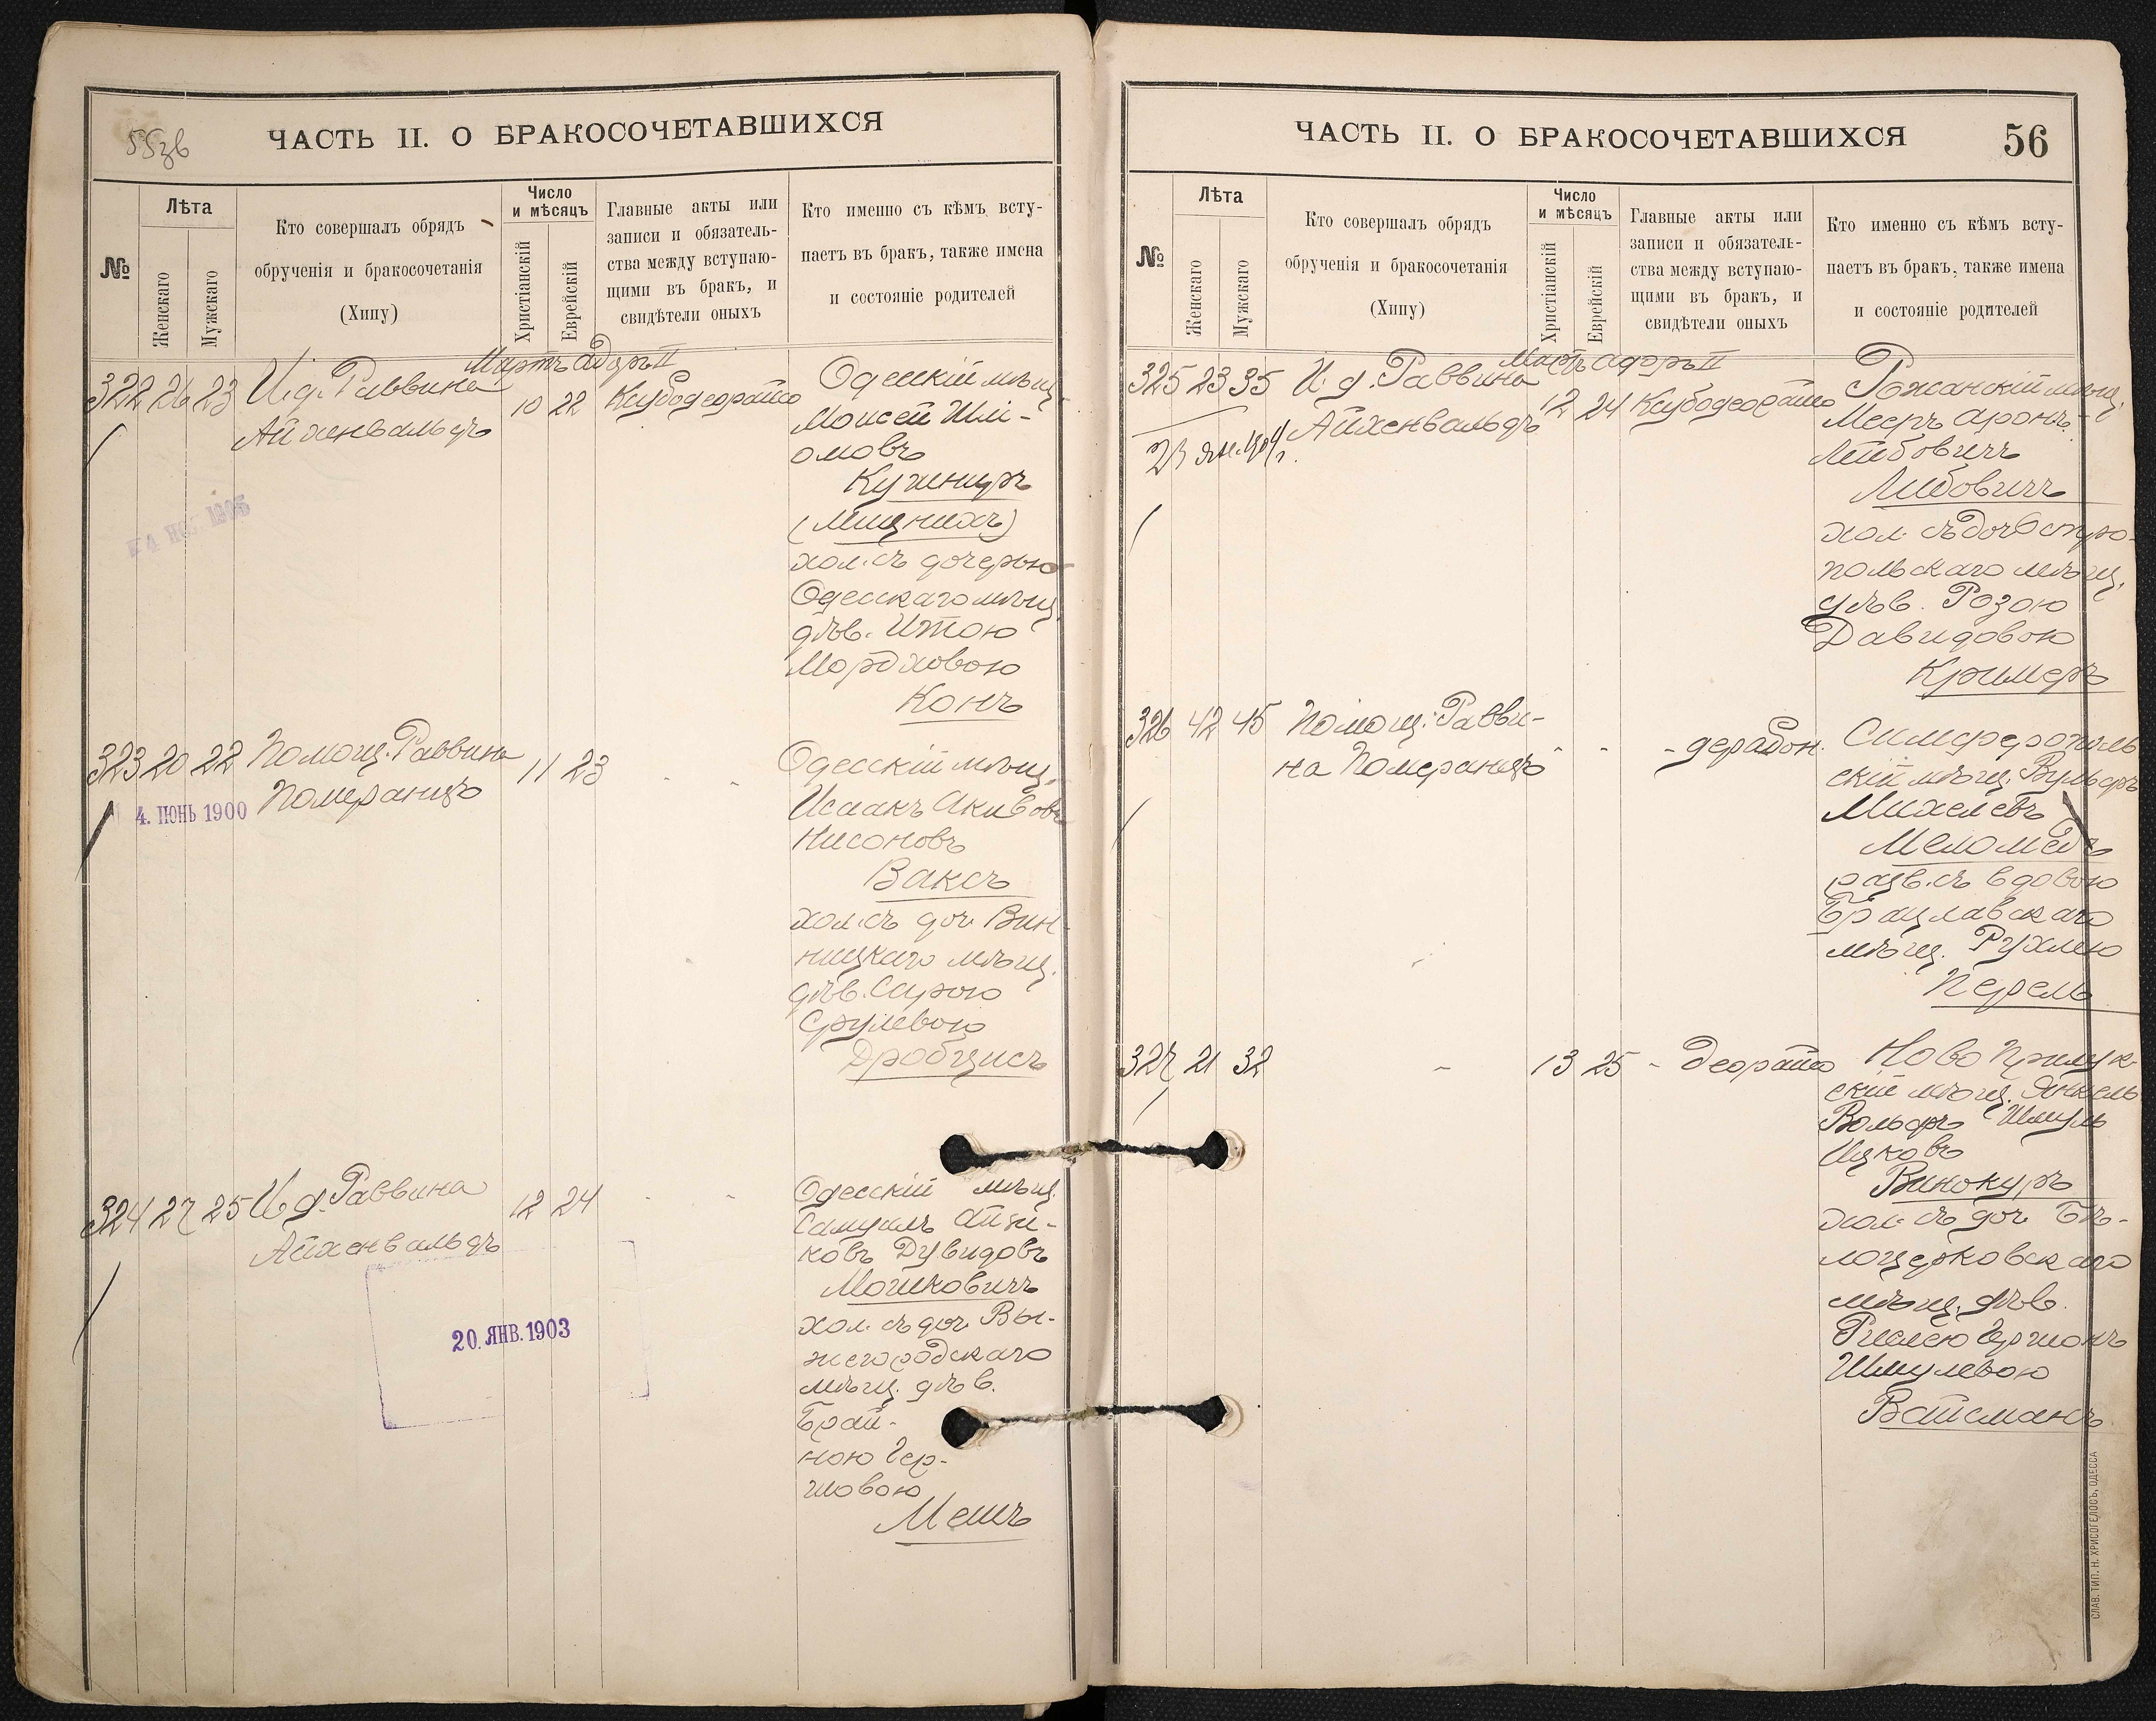 55зв
ЧАСТЬ II. О БРАКОСОЧЕТАВШИХСЯ
№
Лѣта
Женскаго
Мужскаго
Кто совершалъ обрядъ
обрученія и бракосочетанія
(Хипу)
Число
и мѣсяцъ
Христіанскій
Еврейскій
Главные акты или
записи и обязатель-
ства между вступаю-
щими въ бракъ, и
свидѣтели оныхъ
Кто именно съ кѣмъ всту-
паетъ въ бракъ, также имена
и состояніе родителей
Мартъ Адаръ II
322 26 23 И. д. Раввина
Айхенвальдъ
10 22 Кубодеорайто
Одесскій мѣщ.
Моисей Шлі-
омовъ
Кушниръ
хол. съ дочерью
Одесскаго мѣщ.
дѣв. Итою
Мордховою
Конъ
323 20 22 Помощ. Раввина
Померанцъ
11 23 - -
4. ІЮНЬ 1900
Одесскій мѣщ.
Исаакъ Акивовъ
Нисоновъ
Ваксъ
хол. съ доч. Вин-
ницкаго мѣщ.
дѣв. Сурою
Срулевою
Дробцисъ
324 27 25 И. д. Раввина
Айхенвальдъ
12 24 - -
20. ЯНВ. 1903
Одесскій мѣщ.
Самуилъ Айзи-
ковъ Дувидовъ
Мошковичъ
хол. съ доч. Вы-
шегородскаго
мѣщ. дѣв.
Брай-
ною Гер-
шовою
Мешъ
ЧАСТЬ II. О БРАКОСОЧЕТАВШИХСЯ
56
№
Лѣта
Женскаго
Мужскаго
Кто совершалъ обрядъ
обрученія и бракосочетанія
(Хипу)
Число
и мѣсяцъ
Христіанскій
Еврейскій
Главные акты или
записи и обязатель-
ства между вступаю-
щими въ бракъ, и
свидѣтели оныхъ
Кто именно съ кѣмъ всту-
паетъ въ бракъ, также имена
и состояніе родителей
Мартъ Адаръ II
325 23 35 И. д. Раввина
Айхенвальдъ
12 24 Кубодеорайто
23 янв. 1904 г.
Рожанскій мѣщ.
Мееръ Аронъ-
Лейбовичъ
Либовичъ
хол. съ доч. Остро-
польскаго мѣщ.
дѣв. Розою
Давидовою
Кримеръ
326 42 45 Помощ. Равви-
на Померанцъ
- - - дерабон.
Симферополь
скій мѣщ. Вульфъ
Михелевъ
Меломедъ
разв. съ вдовою
Брацлавскаго
мѣщ. Рухлею
Перель
327 21 32 - 13 25 - деорайто
Ново Прилук-
скій мѣщ. Янкель
Вольфъ Шмуль
Ицковъ
Винокуръ
хол. съ доч. Бѣ-
лоцерковскаго
мѣщ. дѣв.
Шмулевою
Вайсманъ
СЛАВ. ТИП. Н. ХРИСОГЕЛОСЪ, ОДЕССА